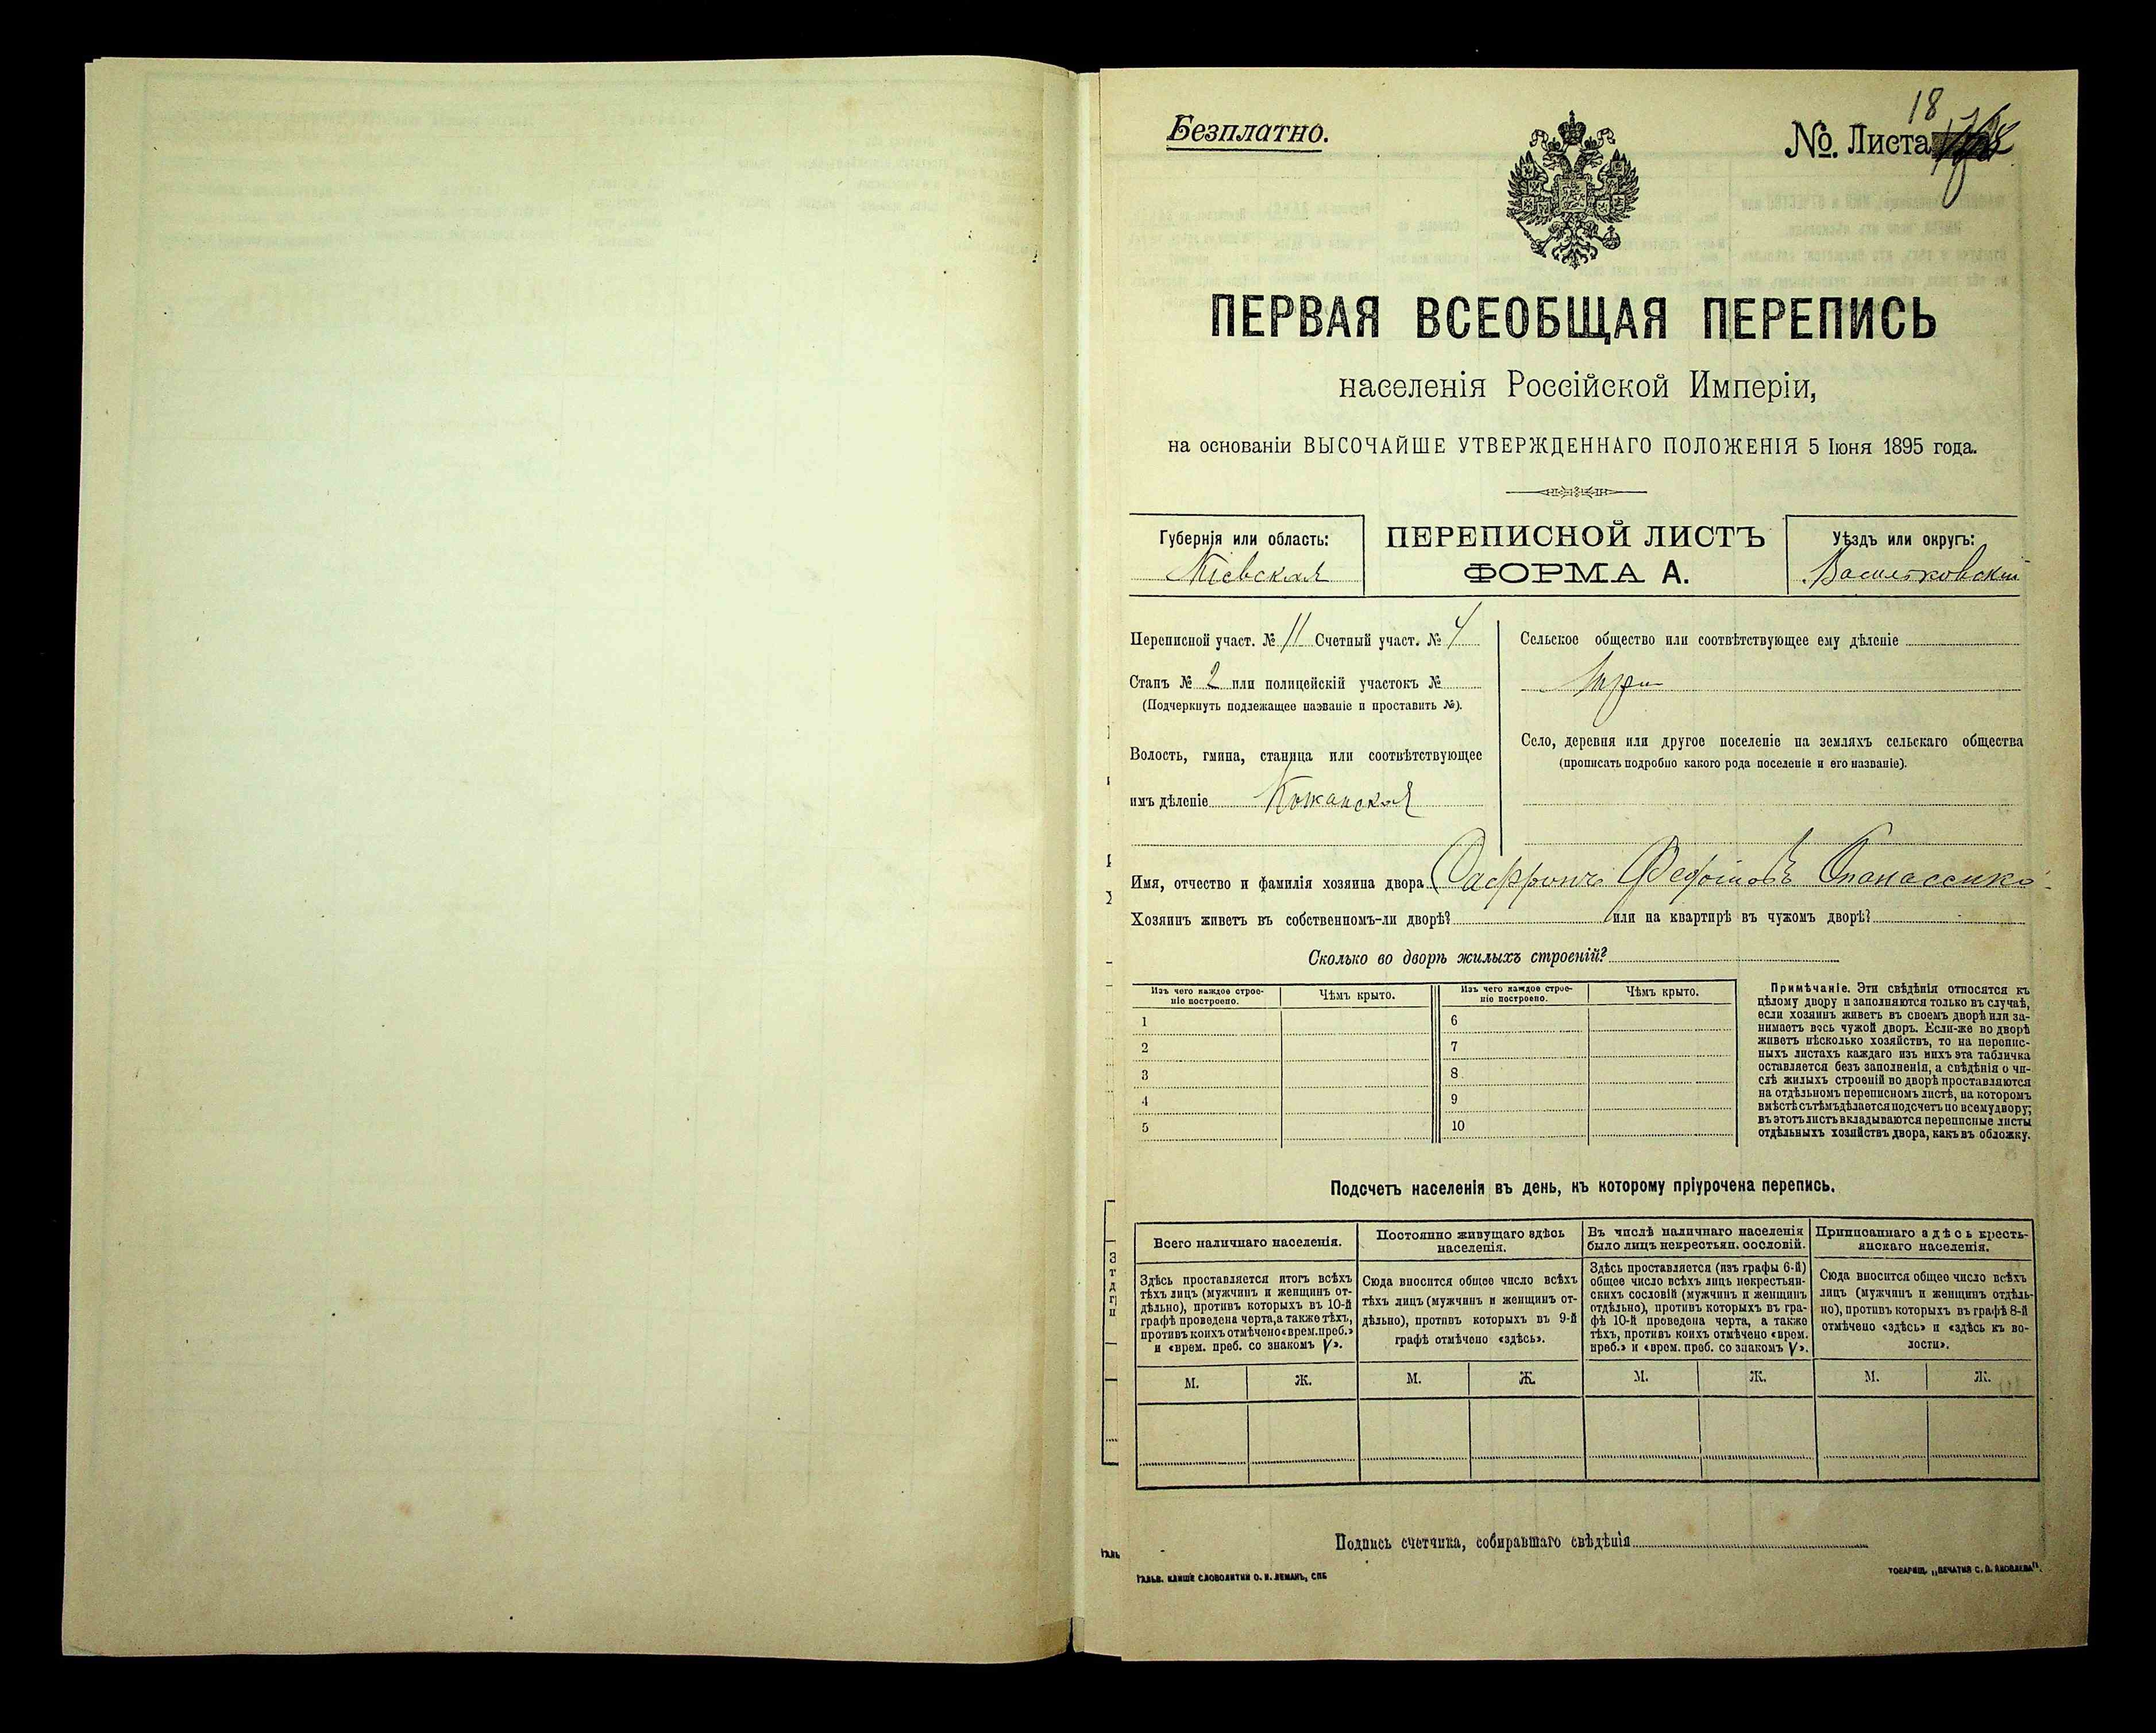 Безплатно.
18
№. Листа
ПЕРВАЯ ВСЕОБЩАЯ ПЕРЕПИСЬ
населенія Россійской Имперіи,
на основаніи ВЫСОЧАЙШЕ УТВЕРЖДЕННАГО ПОЛОЖЕНІЯ 5 Іюня 1895 года.
Губернія или область:
Кіевская
ПЕРЕПИСНОЙ ЛИСТЪ
ФОРМА А.
Уѣздъ или округъ:
Васильковскій
Переписной участ. № 11 Счетный участ. № 4
Станъ № 2 или полицейскій участокъ №
(Подчеркнуть подлежащее названіе и проставить №).
Волость, гмина, станица или соотвѣтствующее
имъ дѣленіе Кожанская
Сельское общество или соотвѣтствующее ему дѣленіе
Село, деревня или другое поселеніе на земляхъ сельскаго общества
(прописать подробно какого рода поселеніе и его названіе).
Имя, отчество и фамилія хозяина двора Саффонъ Федотовъ Опанасенко
Хозяинъ живетъ въ собственномъ-ли дворѣ? или на квартирѣ въ чужомъ дворѣ?
Сколько во дворѣ жилыхъ строеній?
Изъ чего каждое строе-
ніе построено.
Чѣмъ крыто.
Изъ чего каждое строе-
ніе построено.
Чѣмъ крыто.
1 6
2 7
3 8
4 9
5 10
Примѣчаніе. Эти свѣдѣнія относятся къ
цѣлому двору и заполняются только въ случаѣ,
если хозяинъ живетъ въ своемъ дворѣ или за-
нимаетъ весь чужой дворъ. Если-же во дворѣ
живетъ нѣсколько хозяйствъ, то на перепис-
ныхъ листахъ каждаго изъ нихъ эта табличка
оставляется безъ заполненія, а свѣдѣнія о чи-
слѣ жилыхъ строеній во дворѣ проставляются
на отдѣльномъ переписномъ листѣ, на которомъ
вмѣстѣ съ тѣмъ дѣлается подсчетъ по всему двору;
въ этотъ листъ вкладываются переписные листы
отдѣльныхъ хозяйствъ двора, какъ въ обложку.
Подсчетъ населенія въ день, къ которому пріурочена перепись.
Всего наличнаго населенія.
Здѣсь проставляется итогъ всѣхъ
тѣхъ лицъ (мужчинъ и женщинъ от-
дѣльно), противъ которыхъ въ 10-й
графѣ проведена черта, а также тѣхъ,
противъ коихъ отмѣчено «врем. преб.»
и «врем. преб. со знакомъ V».
М. Ж.
Постоянно живущаго здѣсь
населенія.
Сюда вносится общее число всѣхъ
тѣхъ лицъ (мужчинъ и женщинъ от-
дѣльно), противъ которыхъ въ 9-й
графѣ отмѣчено «здѣсь».
М. Ж.
Въ числѣ наличнаго населенія
было лицъ некрестьян. сословій.
Здѣсь проставляется (изъ графы 6-й)
общее число всѣхъ лицъ некрестьян-
скихъ сословій (мужчинъ и женщинъ
отдѣльно), противъ которыхъ въ гра-
фѣ 10-й проведена черта, а также
тѣхъ, противъ коихъ отмѣчено «врем.
преб.» и «врем. преб. со знакомъ V».
М. Ж.
Приписаннаго здѣсь кресть-
янскаго населенія.
Сюда вносится общее число всѣхъ
лицъ (мужчинъ и женщинъ отдѣль-
но), противъ которыхъ въ графѣ 8-й
отмѣчено «здѣсь» и «здѣсь къ во-
лости».
М. Ж.
Подпись счетчика, собиравшаго свѣдѣнія
ГАЛЬВ. КЛИШЕ СЛОВОЛИТНИ О. И. ЛЕМАНЪ, СПБ
ТОВАРИЩ. „ПЕЧАТНЯ С. П. ЯКОВЛЕВА".